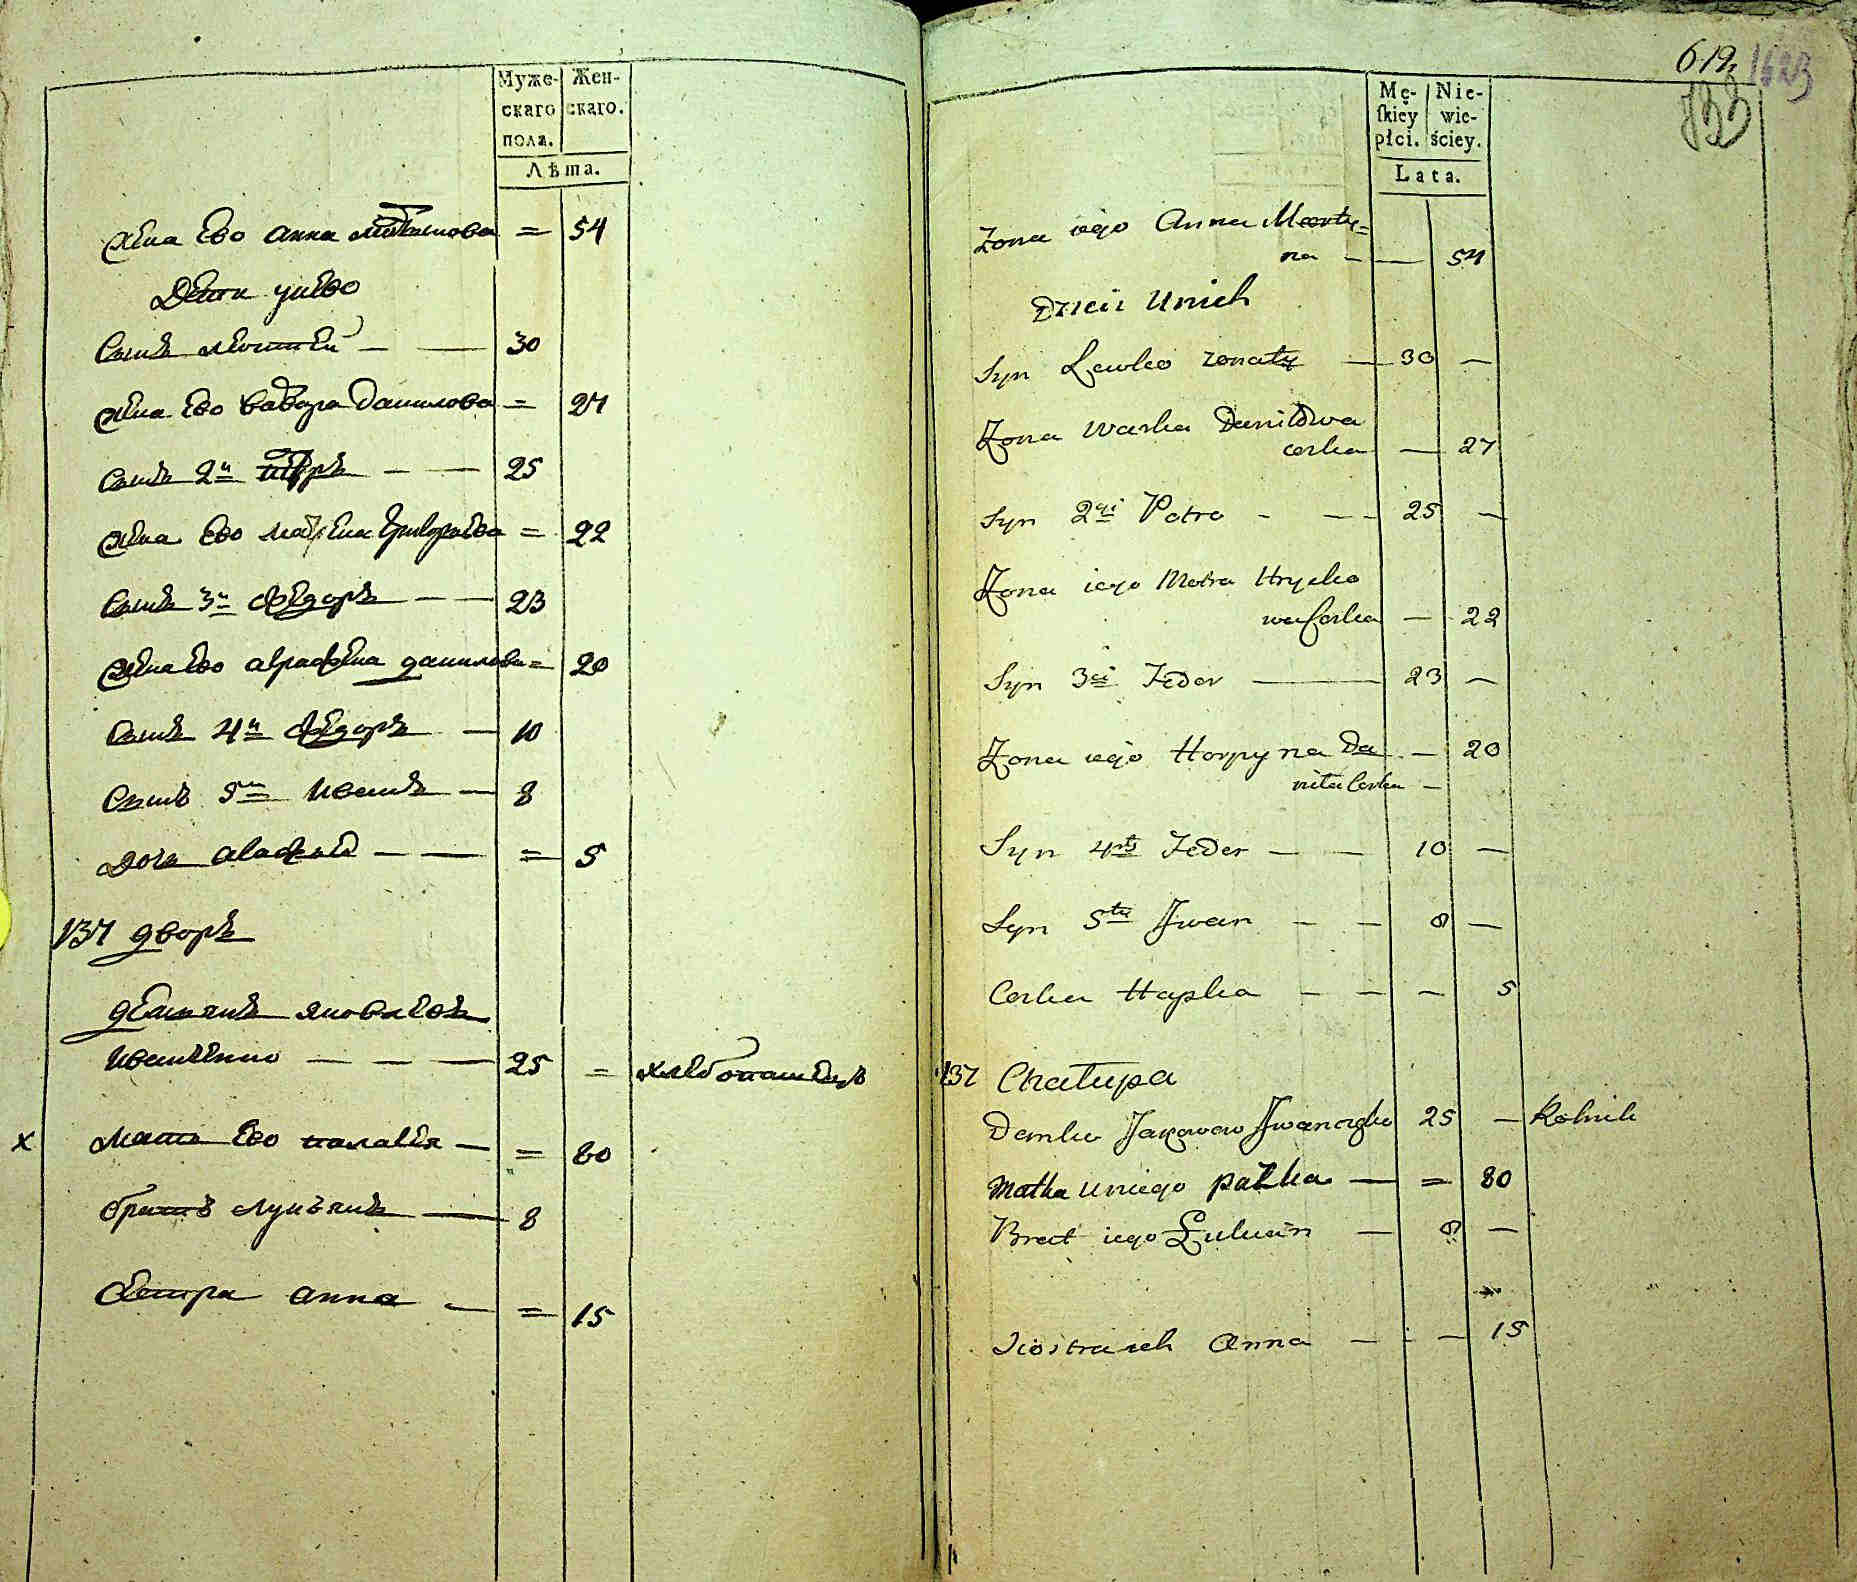 Муже-
скаго
пола.
Жен-
скаго.
Лѣта.
жена ево анна = 54
Дети унево
Сынъ леонтей — — 30
жена ево варвара данилова = 27
Сынъ 2й петръ — — 25
жена ево матрена григорьева = 22
Сынъ 3й федоръ — — 23
жена ево аграфена данилова = 20
Сынъ 4й федоръ — 10
Сынъ 5й иванъ — 8
дочь агафья — — = 5
137 дворъ
демьянъ яковлевъ
иваненко — — — 25 = хлебопашецъ
x мать ево палагея — = 80
братъ лукьянъ — 8
сестра анна — = 15
619 1623
Mę-
skiey
płci.
Nie-
wie-
ściey.
Lata.
Zona iego Anna Marty=
na — — 54
Dzieci Unich
Syn Lewko zonaty — 30 —
Zona Warka Daniłowa
corka — 27
Syn 2gi Petro - — - 25 —
Zona iego Motra Hrycko
wa Corka — 22
Syn 3ci Fedor — 23 —
Zona iego Horpyna Da — 20
niła Corka —
Syn 4ty Feder — — 10 —
Syn 5ty Jwan — — 8 —
Corka Hapka — — — 5
137 Chałupa
Demko Jakowow Jwanenko 25 — Rolnik
Matka Uniego Pałka — = 80
Brat iego Łukian — 8 —
Siostra ich Anna — - — 15